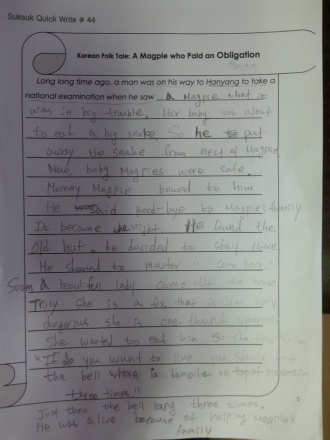 Suksuk Quick Write # 44
Korean Folk Tale: A Magpie who Paid an Obligation
Long long time ago, a man was on his way to Hanyang to take a
national examination when he saw a Magpie that it
was in big trouble. Her baby was about
to eat a big snake. So he put
away the snake from nect of Magpie
Now, baby Magpies were safe.
Mommy Magpie bowed to him
He said good-bye to Magpie's family
It became night. He found the
old hut, he decided to stay there
He shouted to master "come here."
Soon A beautiful lady came the house
Truly she is a fox that it was very
dangerous she is one thousand years
She wanted to eat him so she
"If do you want to live you should
the bell where is temple on top of mountain
three times."
Just then the bell rang three times.
He was alive because of helping Magpie's
family